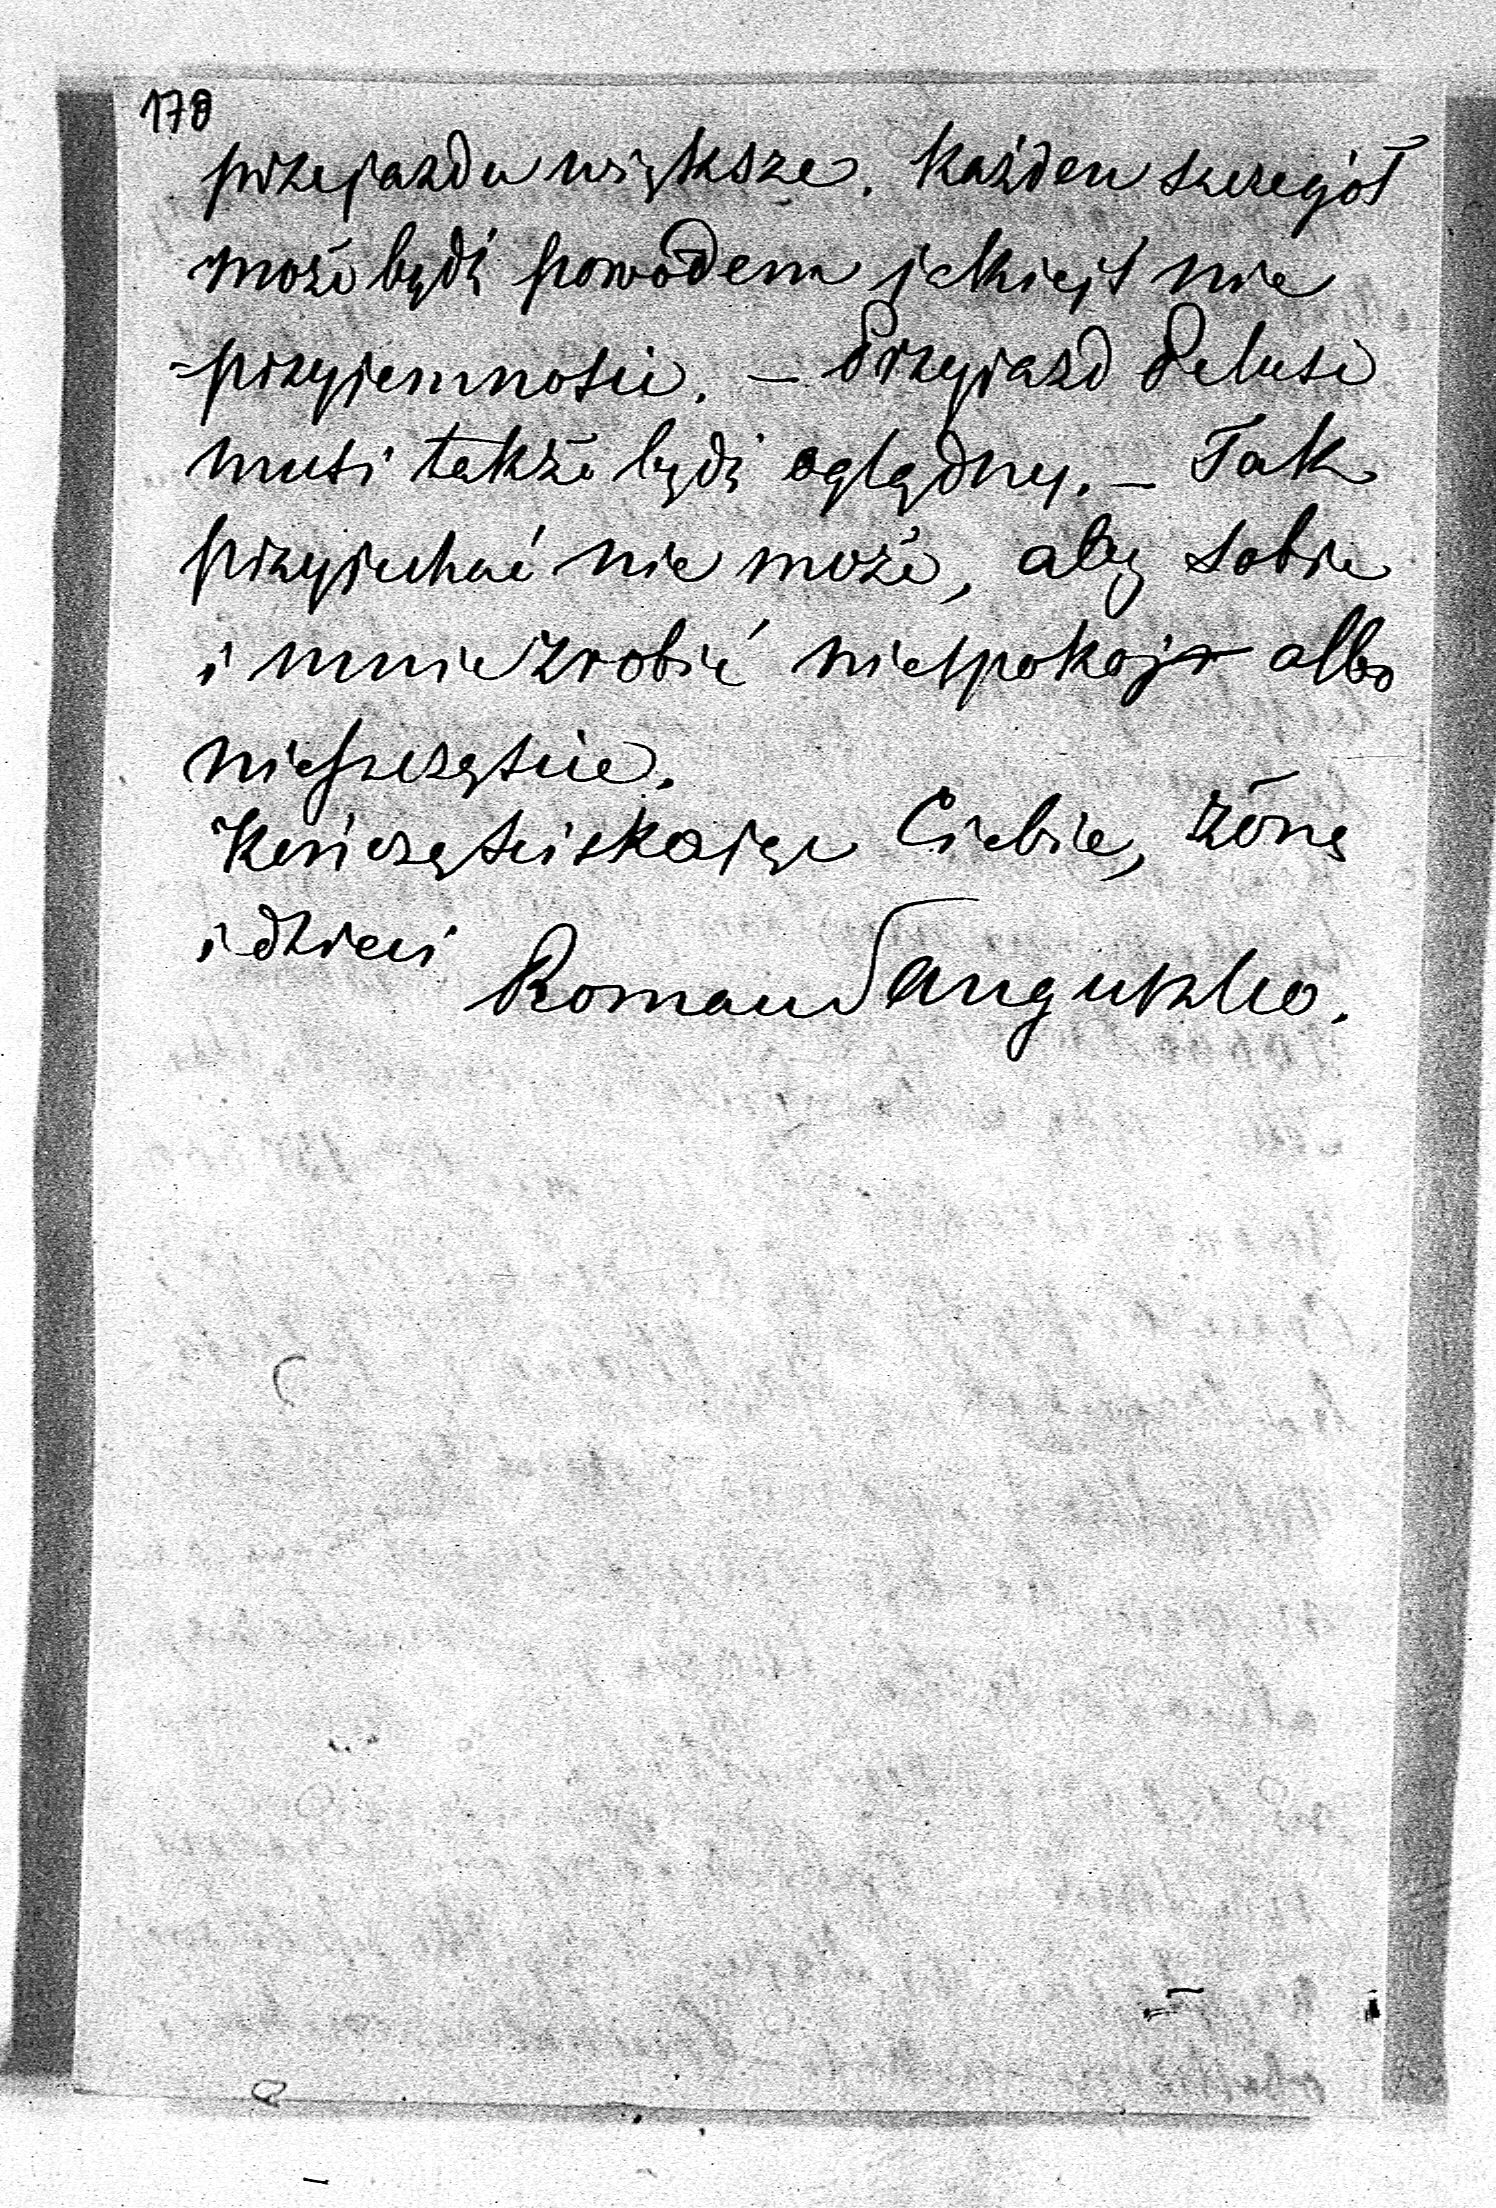 178
przejazdu większe. Każden szczegół
może bydź powodem jakiejś nie
-przyjemności. — Przyjazd Pelusi
musi także bydź oględny. — Tak
przyjechać nie może, aby sobie
i mnie zrobić niespokoj albo
nieszczęście.
Kończę ściskając Ciebie, żonę
i dzieci
Roman Sanguszko.